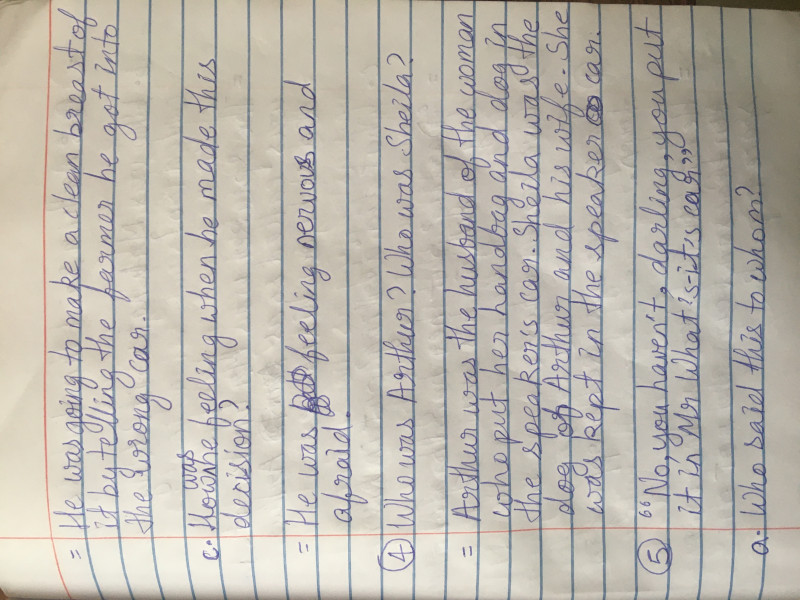 = He was going to make a clean breast of
it by telling the farmer he got into
the wrong car.
c. How was he feeling when he made this
decision?
= He was feeling nervous and
afraid.
④ Who was Arthur? Who was Sheila?
= Arthur was the husband of the woman
who put her handbag and dog in
the speaker's car. Sheila was the
dog of Arthur and his wife. She
was kept in the speaker car.
⑤ "No, you haven't, darling, you put
it in Mr What's-it's car"
a. Who said this to whom?